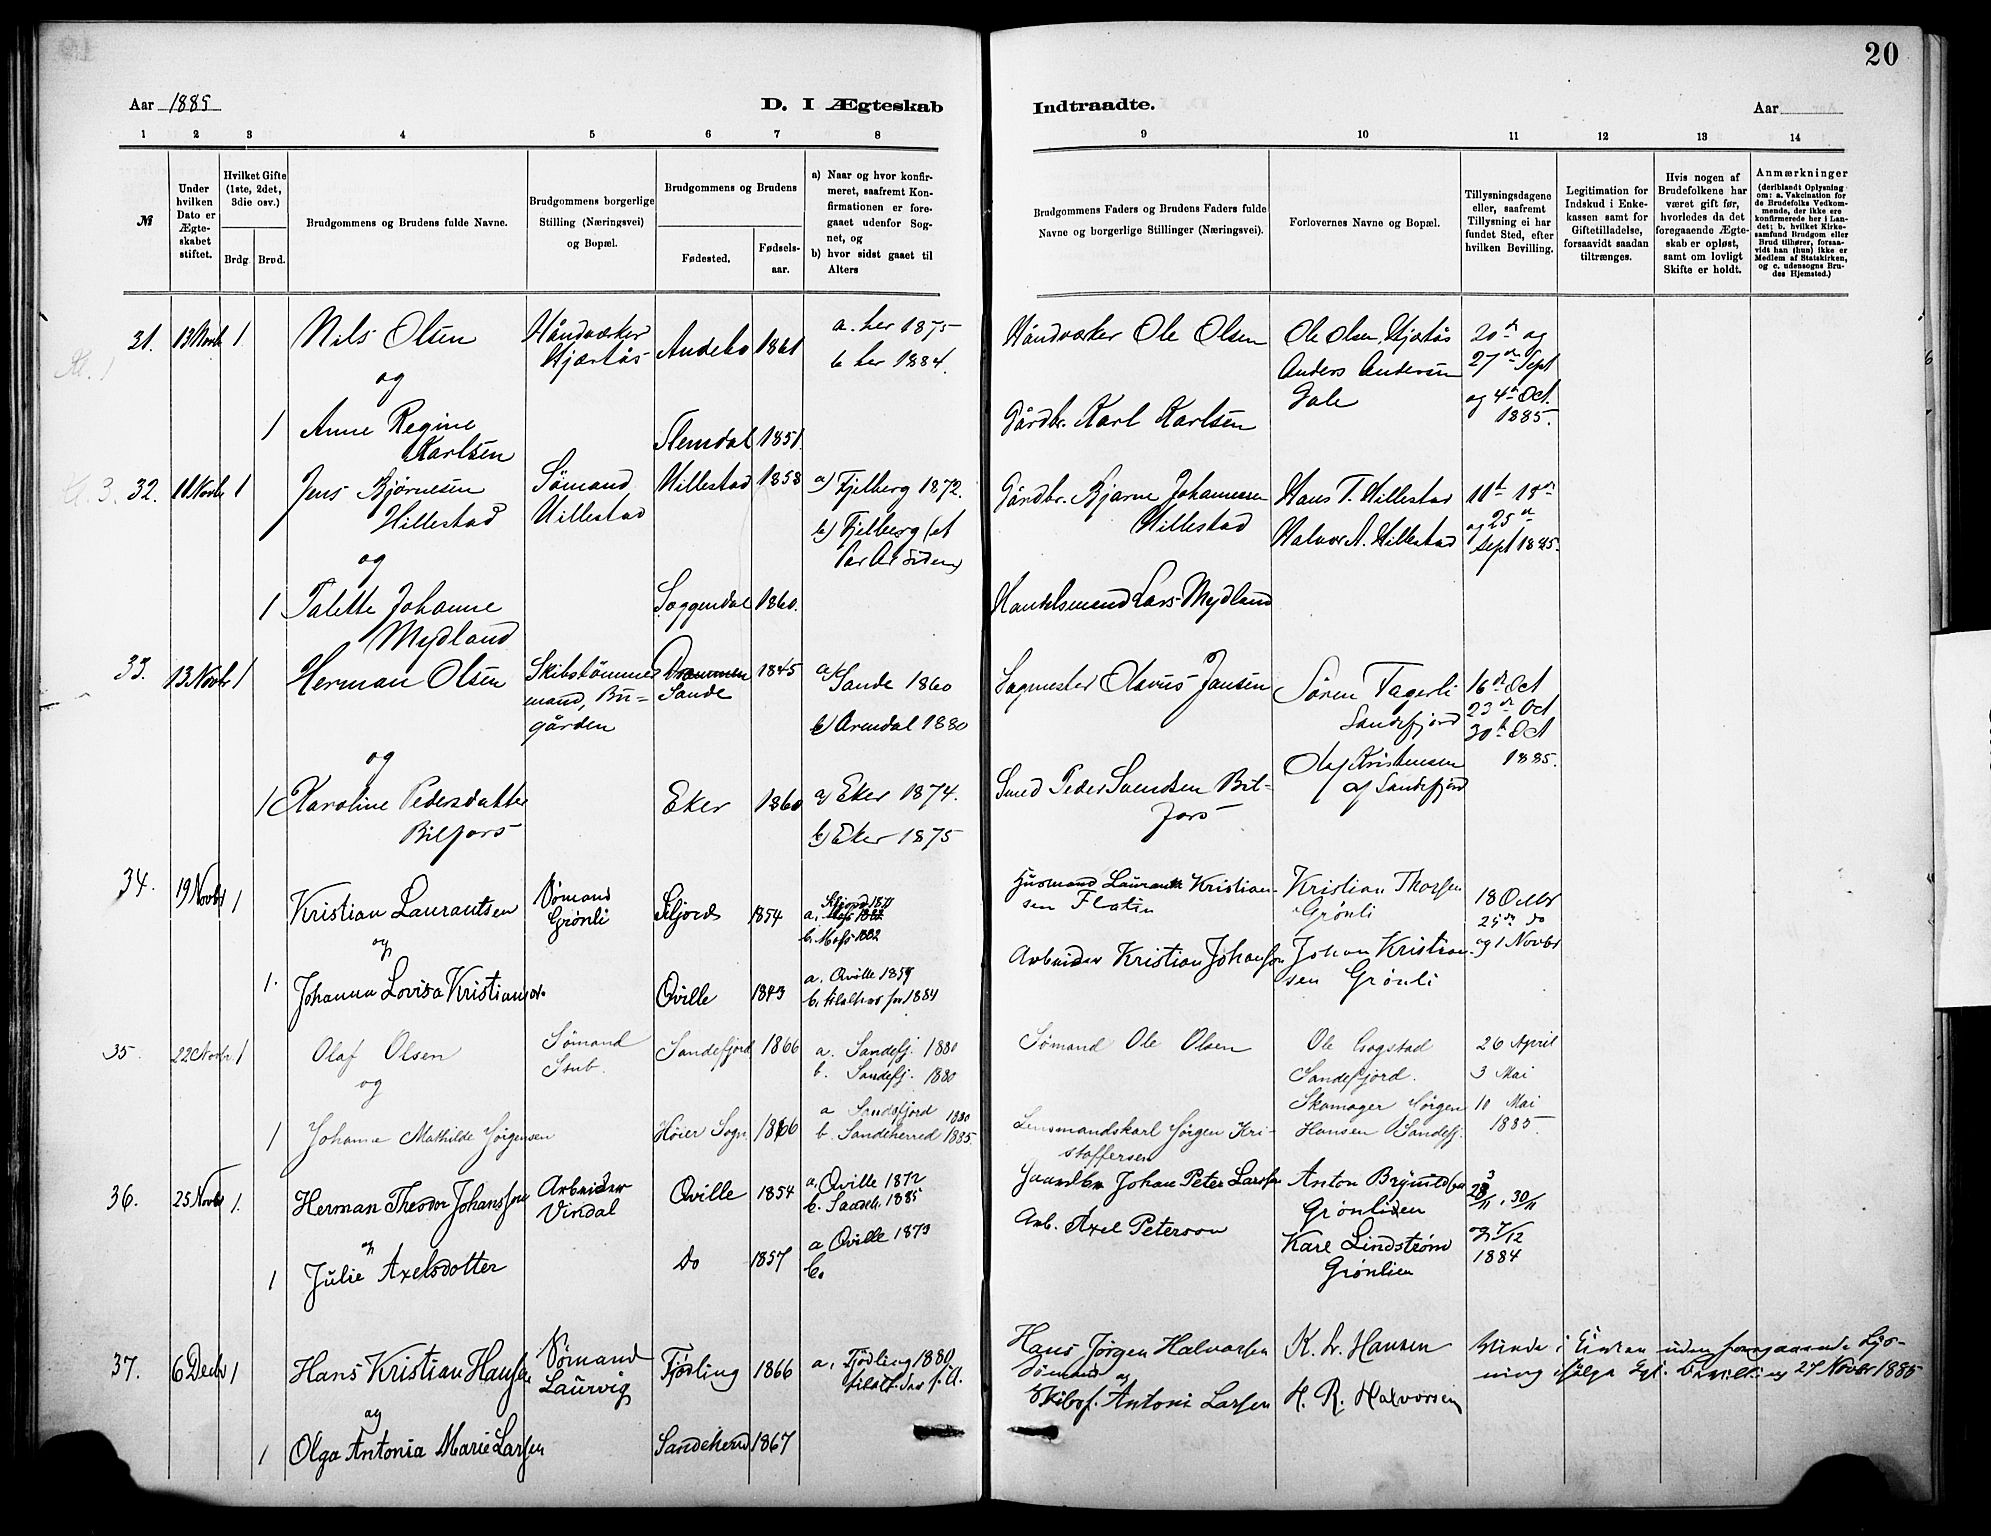 20
Aar 1885
D. I Ægteskab
Indtraadte.
Aar
1 2 3 4 5 6 7 8
9 10 11 12 13 14
№
Under hvilken Dato er Ægteskabet stiftet.
Hvilket Gifte (1ste, 2det, 3die osv.)
Brdg.
Brud.
Brudgommens og Brudens fulde Navne.
Brudgommens borgerlige Stilling (Næringsvei) og Bopæl.
Brudgommens og Brudens
Fødested.
Fødsels-aar.
a) Naar og hvor konfirmeret, saafremt Konfirmationen er foregaaet udenfor Sognet, og
b) hvor sidst gaaet til Alters
Brudgommens Faders og Brudens Faders fulde Navne og borgerlige Stillinger (Næringsvei).
Forlovernes Navne og Bopæl.
Tillysningsdagene eller, saafremt Tillysning ei har fundet Sted, efter hvilken Bevilling.
Legitimation for Indskud i Enkekassen samt for Giftetilladelse, forsaavidt saadan tiltrænges.
Hvis nogen af Brudefolkene har været gift før, hvorledes da det foregaaende Ægteskab er opløst, samt om lovligt Skifte er holdt.
Anmærkninger
(deriblandt Oplysning om: a. Vaccination for de Brudefolks Vedkommende, der ikke ere konfirmerede her i Landet; b. hvilket Kirkesamfund Brudgom eller Brud tilhører, forsaavidt han (hun) ikke er Medlem af Statskirken, og c. udensogns Brudes Hjemsted.)
31. 13 Novb 1 Nils Olsen Håndværker Hjærtås Andebo 1861 a. her 1875 b her 1884. Håndværker Ole Olsen Ole Olsen Hjertås Anders Andersen Gale 20de og 27de Sept og 4de Oct. 1885.
og
1 Anne Regine Karlsen Slemdal 1851. Gårdbr. Karl Karlsen
32. 11 Novb 1 Jens Bjørnesen Hillestad Sømand Hillestad Hillestad 1858 a) Fjelberg 1872. b) Fjelberg (et Par År siden) Gårdbr. Bjarne Johannessen Hillestad Hans T. Hillestad Halvor A. Hillestad 11te 18de og 25de Sept 1885.
og
1 Talette Johanne Mydland Soggendal 1860. Handelsmand Lars Mydland
33. 13 Novbr 1 Herman Olsen Skibstømmermand, Bugården Sande 1845 a) Sande 1860 b) Arendal 1880 Sagmester Olavus Jansen Søren Fagerli Sandefjord 16de Oct 23de Oct 30te Oct 1885.
Olaf Kristensen af Sandefjord
og
1 Karoline Pedersdatter Bilfors Eker 1860 a) Eker 1874. b) Eker 1875 Smed Peder Svendsen Bilfors
34. 19 Novbr 1 Kristian Laurantsen Sømand Grønli Siljord 1854 b. Moss 1882 Husmand Laurants Kristiansen Flatin Kristian Thorsen Grønli 18 Octbr 25de do og 1 Novbr
og
1. Johanna Lovisa Kristiansdr. Qville 1843 a. Qville 1859 Arbeider Kristian Johanson Johan Kristiansen Grønli
35. 22 Novbr 1 Olaf Olsen Sømand Stub. Sandefjord 1866 a. Sandefj. 1880 b. Sandefj. 1880 Sømand Ole Olsen Ole Gogstad Sandefjord. 26 April 3 Mai 10 Mai 1885.
og
1 Johanne Mathilde Jørgensen Høier Sogn 1866 a Sandefjord 1880 b. Sandeherred 1885. Lensmandskarl Jørgen Kristoffersen Skomager Jørgen Hansen Sandefj.
36. 25 Novbr 1. Herman Theodor Johansson Arbeider Vindal Qville 1854 a. Qville 1872 b. Sandeh. 1885 Gaardbr Johan Peter Larsson Anton Brynildsen Grønlien 23/11, 30/11 og 7/12 1884
og
1 Julie Axelsdotter Do 1857 a Qville 1873 b. Arb. Axel Peterson Karl Lindstrøm Grønlien
37. 6 Decbr 1 Hans Kristian Hansen Sømand Laurvig Tjødling 1866 a. Tjødling 1880 Hans Jørgen Halvorsen Sømand og K. L. Hansen uden foregaaende Lysning ifølge Kgl. Bevilling 27 Novbr 1885
og
1 Olga Antonia Marie Larsen Sandeherred 1867 Skibsf. Antoni Larsen H. R. Halvorsen